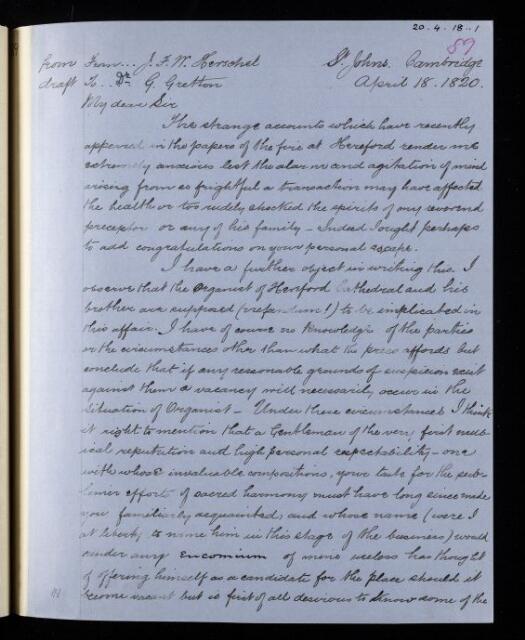 20-4-18-1
59
from From... J. F. W. Herschel St Johns. Cambridge
draft To.. Dr. G. Gretton April 18. 1820.
My dear Sir
The strange accounts which have recently
appeared in the papers of the fire at Hereford render me
extremely anxious lest the alarm and agitation of mind
arising from so frightful a transaction may have affected
the health or too rudely shocked the spirits of my reverend
preceptor or any of his family - Indeed I ought perhaps
to add congratulations on your personal escape.
I have a further object in writing this. I
observe that the Organist of Hereford Cathedral and his
brother are supposed (nefandum!) to be implicated in
this affair. I have of course no knowledge of the parties
or the circumstances other than what the press affords but
conclude that if any reasonable grounds of suspicion exist
against them a vacancy will necessarily occur in the
situation of Organist - Under these circumstances I think
it right to mention that a Gentleman of the very first mus-
ical reputation and high personal respectability - one
with whose invaluable compositions, your taste for the sub-
limer efforts of sacred harmony must have long since made
you familiarly acquainted, and whose name (were I
at liberty to name him in this stage of the business) would
render any encomium of mine useless has thought
of offering himself as a candidate for the place should it
become vacant but is first of all desirous to know some of the